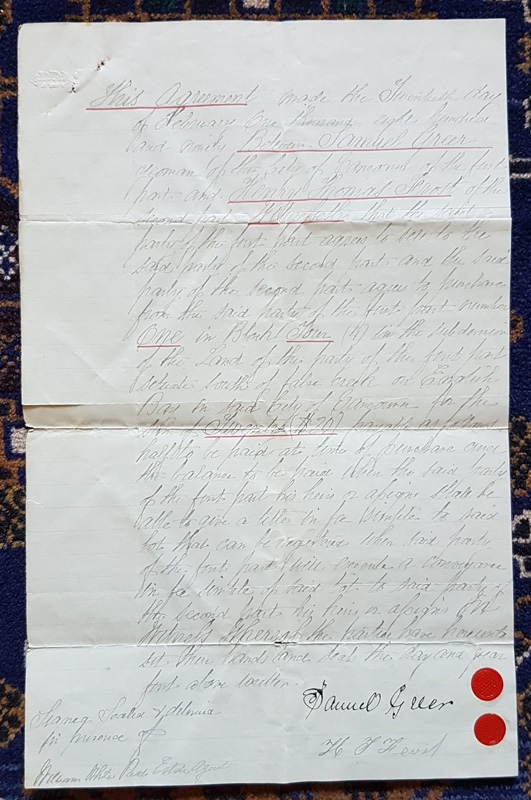 This Agreement made the Twentieth day
of February One thousand eight hundred
and ninety Between Samuel Greer
yeoman of the City of Vancouver of the first
part and Henry Thomas Frost of the
second part Witnesseth that the said
party of the first part agrees to sell to the
said party of the second part and the said
party of the second part agree to purchase
from the said party of the first part number
One in Block Four (4) in the subdivision
of the Land of the party of the first part
situate South of False Creek on English
Bay in said City of Vancouver for the
($20) payable as follows
half to be paid at time of purchase and
the balance to be paid when the said party
of the first part his heirs or assigns shall be
able to give a title in fee simple to said
lot that can be registered when said party
of the first part will execute a conveyance
in fee simple of said lot to said party of
the second part his heirs or assigns In
Witness Whereof the parties have hereunto
set their hands and seals the day and year
first above written.
Signed Sealed & delivered
in presence of
William White Real Estate Agent
Samuel Greer
H T Frost